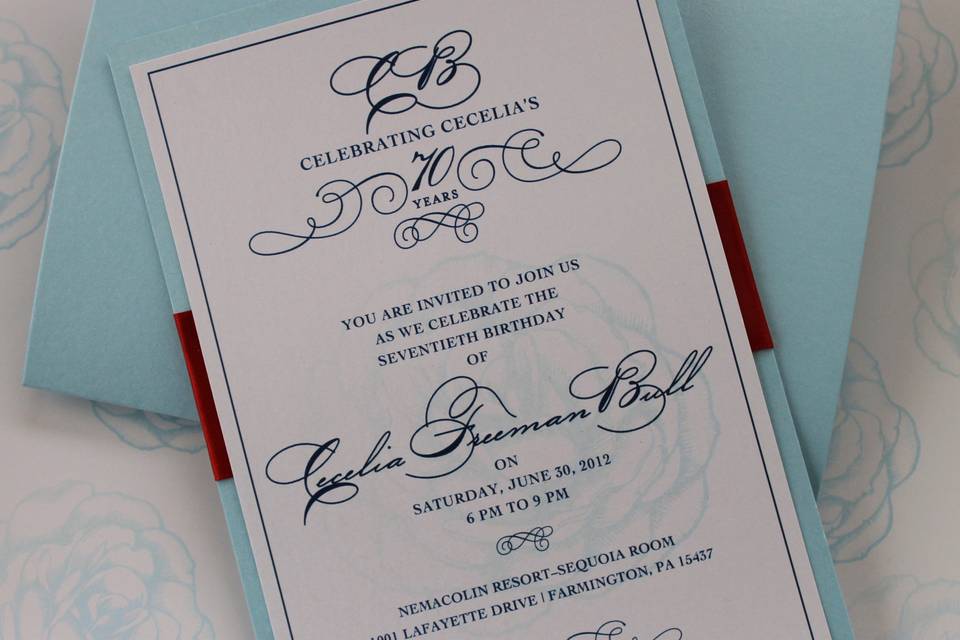 CB
CELEBRATING CECELIA'S
70
YEARS
YOU ARE INVITED TO JOIN US
AS WE CELEBRATE THE
SEVENTIETH BIRTHDAY
OF
Cecelia Freeman Bull
ON
SATURDAY, JUNE 30, 2012
6 PM TO 9 PM
NEMACOLIN RESORT–SEQUOIA ROOM
1001 LAFAYETTE DRIVE | FARMINGTON, PA 15437